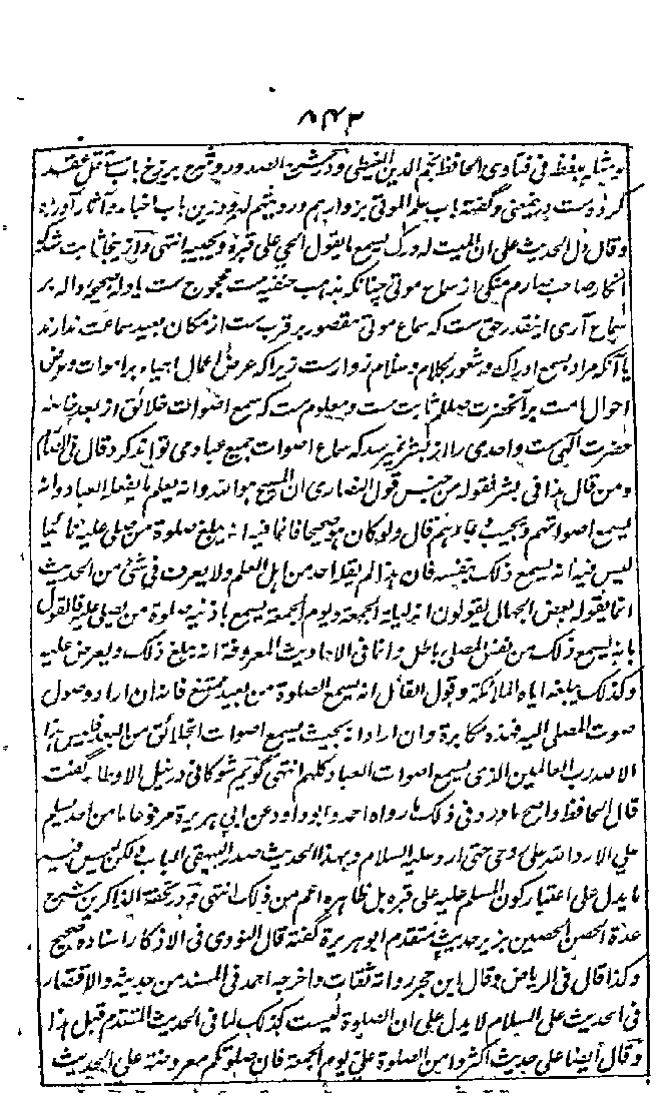 ۸۴۳
فی فتاوی الحافظ نجم الدین الغیطی و در شرح الصدور و شرح برزخ باب مستقل عقد
کرده ست درینمعنی و گفته باب علم الموتی بزوارهم و رویتهم لهم و درین باب اخبار و آثار آورده
و قال دل الحدیث علی ان المیت له درک یسمع القول الحی علی قبره و یجیبه انتهی و از ینجا ثابت شد که
انکار صاحب صارم منکی از سماع موتی چنانکه مذهب حنفیه ست مججوج ست بادله صحیحه داله بر
سماع آری اینقدر حق ست که سماع موتی مقصور بر قرب ست از مکان بعید سماعت ندارند
یا آنکه مراد بسمع ادراک و شعور بکلام و سلام زوار ست زیرا که عرض اعمال احیاء بر اموات و عرض
احوال امت بر آنحضرت صللم ثابت ست و معلوم ست که سمع اصوات خلائق از بعد خاصه
حضرت الهی ست و احدی را از بشر نمیرسد که سماع اصوات جمیع عباد می تواند کرد قال فی الصارم
و من قال هذا فی بشر فقوله من جنس قول النصاری ان المسیح هو الله و انه یعلم ما یفعله العباد و انه
یسمع اصواتهم و یجیب دعاءهم قال و لو کان هو صحیحا فانما فیه انه یبلغ صلوة من صلی علیه نائیا
لیس فیه انه یسمع ذلک بنفسه فان هذا لم یقله احد من اهل العلم و لا یعرف فی شیٔ من الحدیث
انما یقوله بعض الجهال یقولون انه لیلة الجمعة و یوم الجمعة یسمع باذنیه صلوة من یصلی علیه فالقول
بانه یسمع ذلک من نفس المصلی باطل و انما فی الاحادیث المعروفة انه یبلغ ذلک و یعرض علیه
و کذلک یبلغه ایاه الملائکة و قول القائل انه یسمع الصلوة من بعید ممتنع فانه ان اراد وصول
صوت المصلی الیه فهذه مکابرة و ان اراد انه بحیث یسمع اصوات الخلائق من البعد فلیس هذا
الا لله رب العالمین الذی یسمع اصوات العباد کلهم انتهی گویم شوکانی در نیل الاوطار گفته
قال الحافظ و اصح ما ورد فی ذلک ما رواه احمد و ابوداود عن ابی هریرة مرفوعا ما من احد یسلم
علی الا رد الله علی روحی حتی ارد علیه السلام و بهذا الحدیث صدر البیهقی الباب و لکن لیس فیه
ما یدل علی اعتبار کون المسلم علیه علی قبره بل ظاهره اعم من ذلک انتهی و در تحفة الذاکرین شرح
عدة الحصن الحصین بزیر حدیث متقدم ابو هریرة گفته قال النووی فی الاذکار اسناده صحیح
و کذا قال فی الریاض و قال ابن حجر رواته ثقات و اخرجه احمد فی المسند من حدیثه و الاقتصار
فی الحدیث علی السلام لا یدل علی ان الصلوة لیست کذلک لما فی الحدیث المتقدم قبل هذا
و قال ایضا علی حدیث اکثروا من الصلوة علی یوم الجمعة فان صلوتکم معروضة علی الحدیث